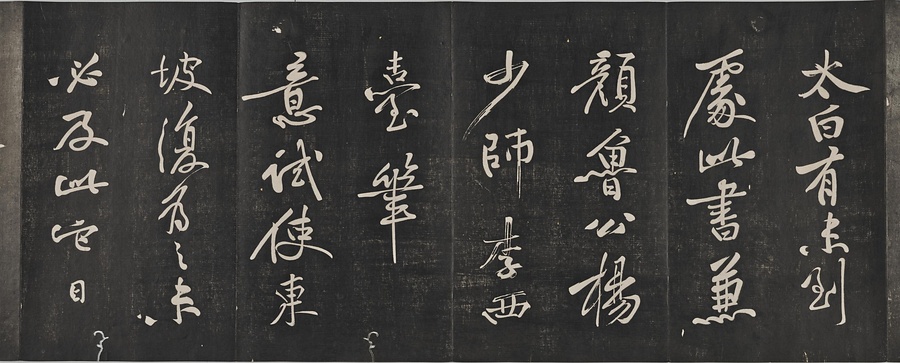 太白有未到
處此書兼
顏魯公楊
少師李西
臺筆
意試使東
坡復為之未
必及此它日